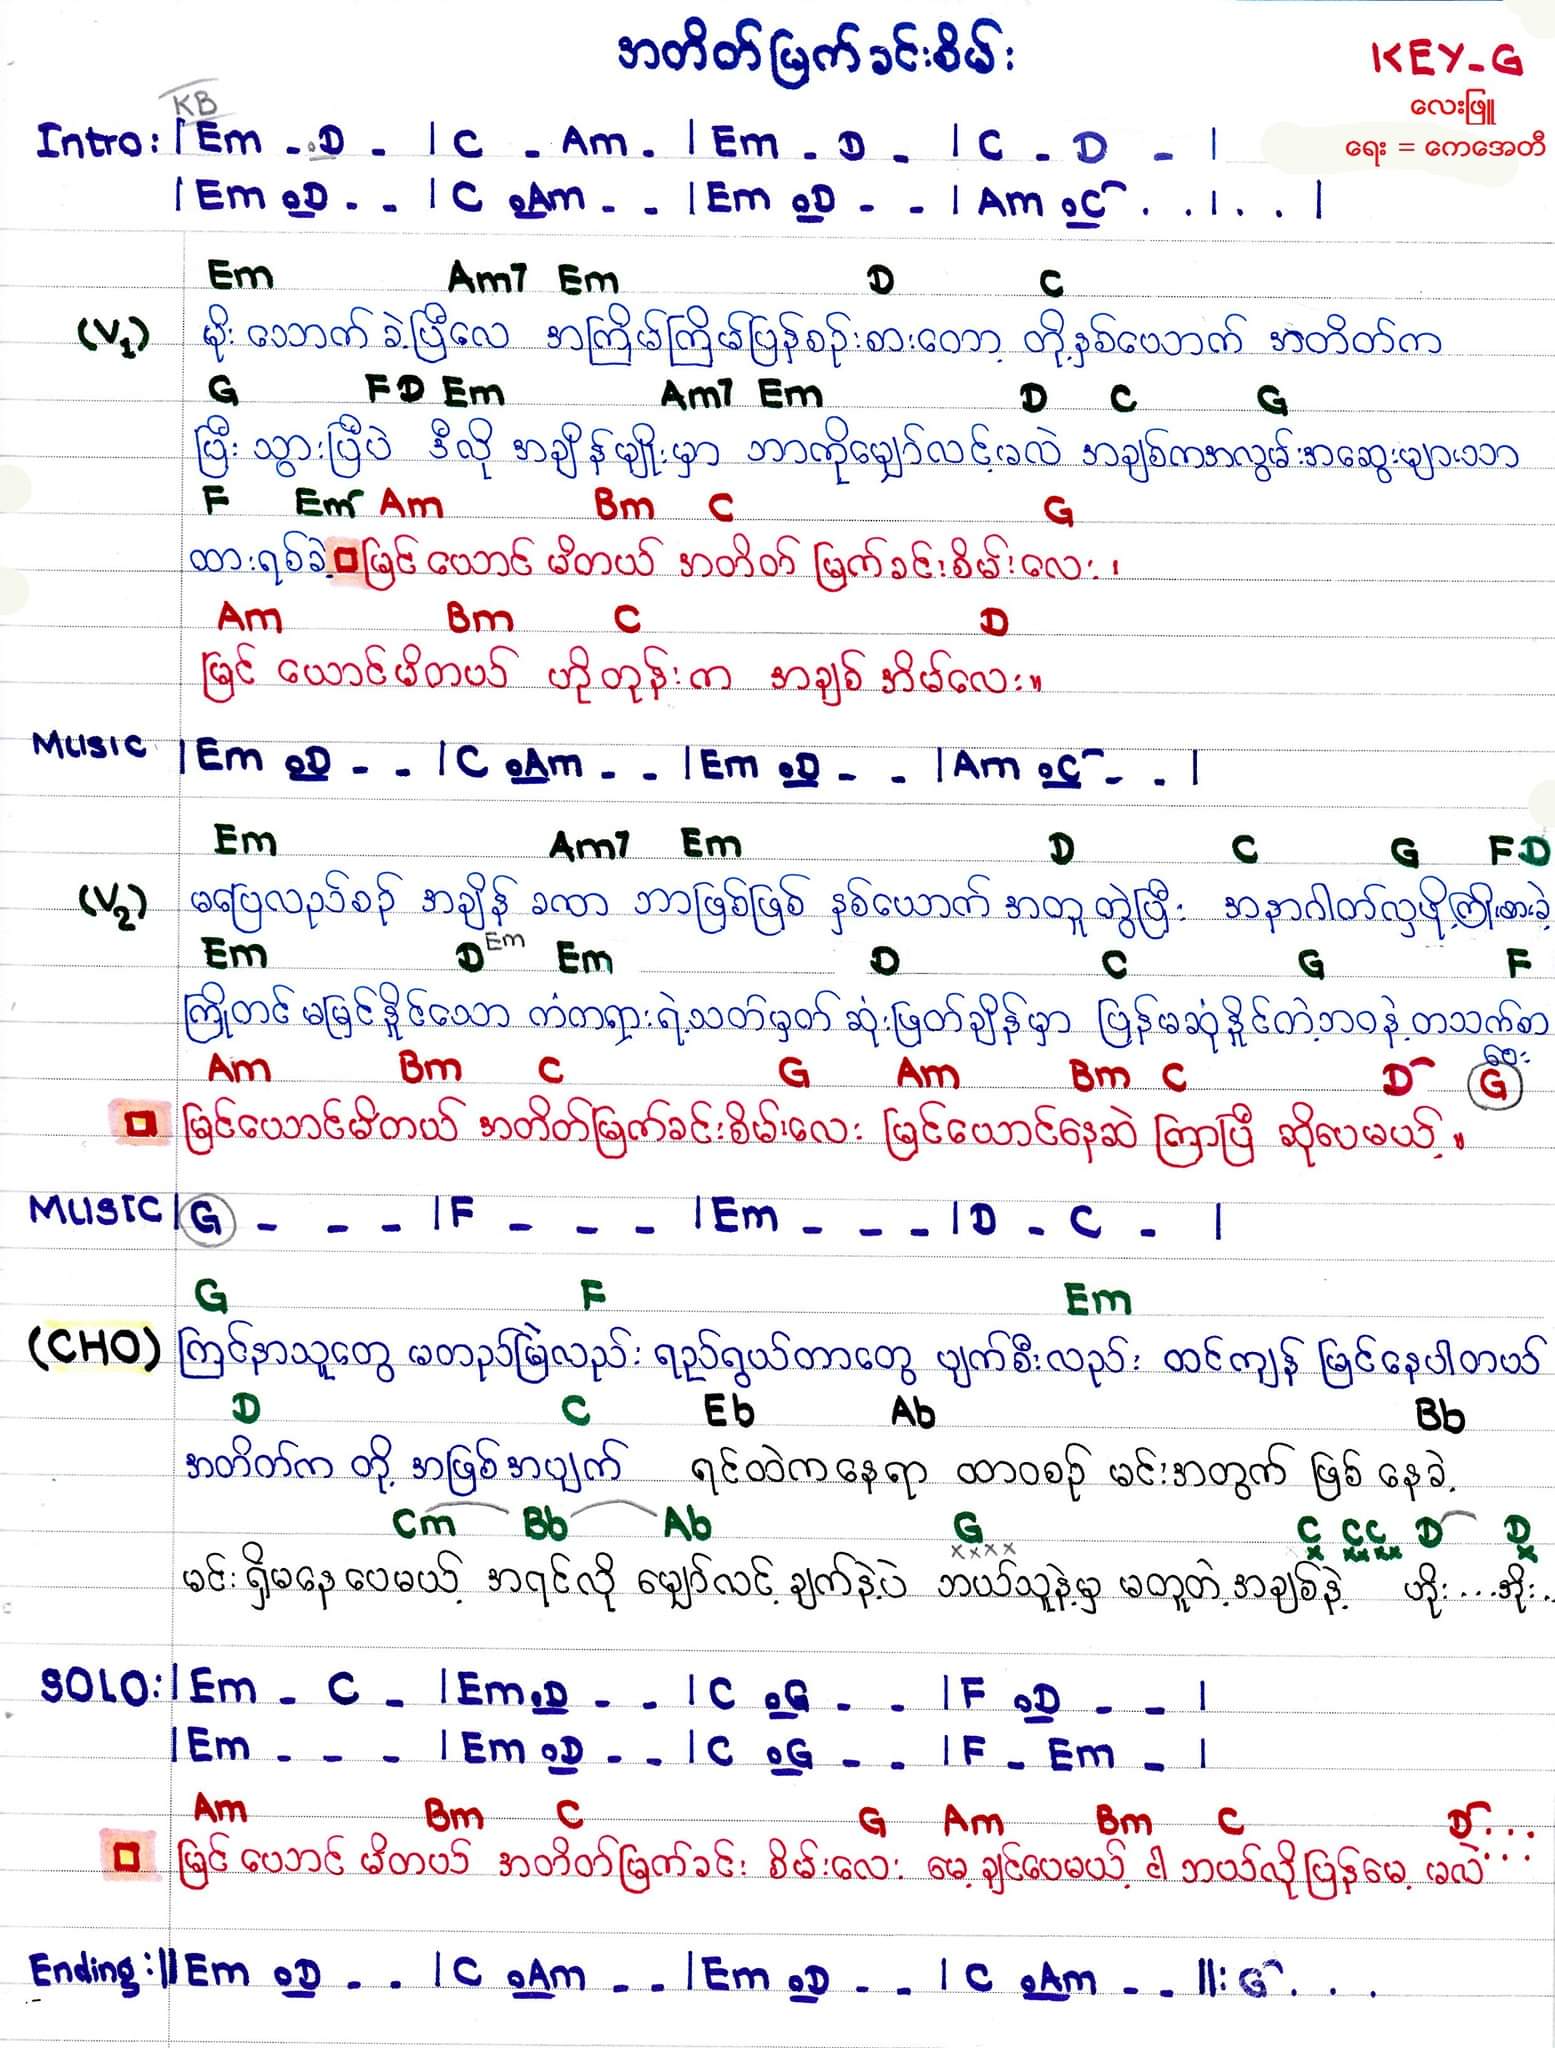 အတိတ်မြက်ခင်းစိမ်း
KEY-G
လေးဖြူ
ရေး = ကေအေတီ
KB
Intro: | Em - .D - | C - Am - | Em - D - | C - D - |
| Em oD - - | C oAm - - | Em oD - - | Am oC . . | . . |
Em Am7 Em D C
(V1) မိုးသောက်ခဲ့ပြီလေ အကြိမ်ကြိမ်ပြန်စဉ်းစားတော့ တို့နှစ်ယောက် အတိတ်က
G F D Em Am7 Em D C G
ပြီးသွားပြီပဲ ဒီလို အချိန်မျိုးမှာ ဘာကိုမျှော်လင့်မလဲ အချစ်ကအလွမ်းအဆွေးများသာ
F Em Am Bm C G
ထားရစ်ခဲ့ မြင်ယောင်မိတယ် အတိတ် မြက်ခင်းစိမ်းလေး ၊
Am Bm C D
မြင်ယောင်မိတယ် ဟိုတုန်းက အချစ်အိမ်လေး ။
MUSIC | Em oD - - | C oAm - - | Em oD - - | Am oC - - |
Em Am7 Em D C G F D
(V2) မပြေလည်စဉ် အချိန်ခဏာ ဘာဖြစ်ဖြစ် နှစ်ယောက်အတူတွဲပြီး အနာဂါတ်လှဖို့ကြိုးစားခဲ့
Em D Em Em D C G F
ကြိုတင်မမြင်နိုင်သော ကံကရှားရဲ့သတ်မှတ်ဆုံးဖြတ်ချိန်မှာ ပြန်မဆုံနိုင်တဲ့ဘဝနဲ့ တသက်စာ
ဝေး
Am Bm C G Am Bm C D G
မြင်ယောင်မိတယ် အတိတ်မြက်ခင်းစိမ်းလေး မြင်ယောင်နေဆဲ ကြာပြီ ဆိုပေမယ့် ။
MUSIC | G - - - | F - - - | Em - - - | D - C - |
G F Em
(CHO) ကြင်နာသူတွေ မတည်မြဲလည်း ရည်ရွယ်တာတွေ ပျက်စီးလည်း ထင်ကျန် မြင်နေပါတယ်
D C Eb Ab Bb
အတိတ်က တို့ အဖြစ်အပျက် ရင်ထဲကနေရာ ထာဝစဉ် မင်းအတွက် ဖြစ်နေခဲ့
Cm Bb Ab G C CC D D
xxxx x xx xx x
မင်းရှိမနေပေမယ့် အရင်လို မျှော်လင့်ချက်နဲ့ပဲ ဘယ်သူနဲ့မှ မတူတဲ့အချစ်နဲ့ ဟိုး...အိုး..
SOLO: | Em - C - | Em oD - - | C oG - - | F oD - - |
| Em - - - | Em oD - - | C oG - - | F - Em - |
Am Bm C G Am Bm C D...
မြင်ယောင်မိတယ် အတိတ်မြက်ခင်းစိမ်းလေး မေ့ချင်ပေမယ့် ငါဘယ်လိုပြန်မေ့မလဲ...
Ending :|| Em oD - - | C oAm - - | Em oD - - | C oAm - - ||: G . . .